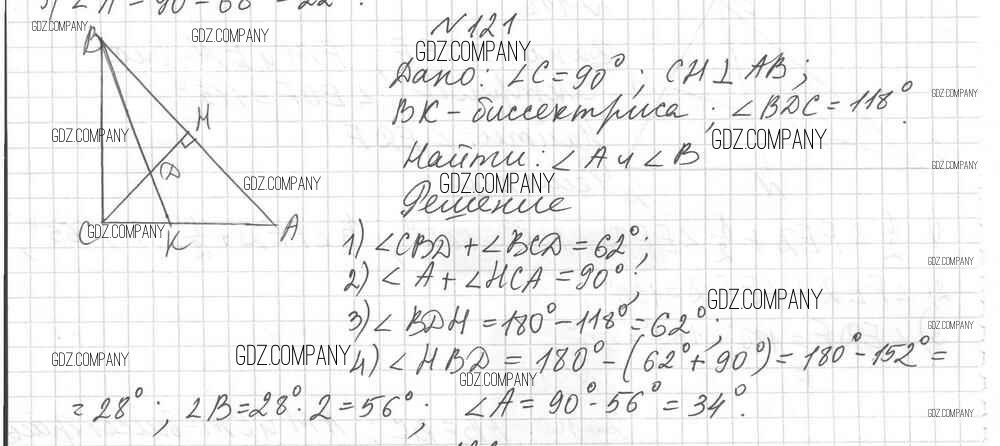 ∠A = 90° - 68° = 22°.
GDZ.COMPANY
GDZ.COMPANY
№121
GDZ.COMPANY
B
Дано: ∠C = 90°; CH ⊥ AB;
GDZ.COMPANY
BK - биссектриса; ∠BDC = 118°.
H
GDZ.COMPANY
GDZ.COMPANY
Найти: ∠A и ∠B
GDZ.COMPANY
D
GDZ.COMPANY
GDZ.COMPANY
Решение
C
GDZ.COMPANY
K
A
1) ∠CBD + ∠BCD = 62°;
GDZ.COMPANY
2) ∠A + ∠HCA = 90°;
GDZ.COMPANY
3) ∠BDH = 180° - 118° = 62°;
GDZ.COMPANY
GDZ.COMPANY
GDZ.COMPANY
4) ∠HBD = 180° - (62° + 90°) = 180° - 152° =
GDZ.COMPANY
= 28°; ∠B = 28° · 2 = 56°; ∠A = 90° - 56° = 34°.
GDZ.COMPANY